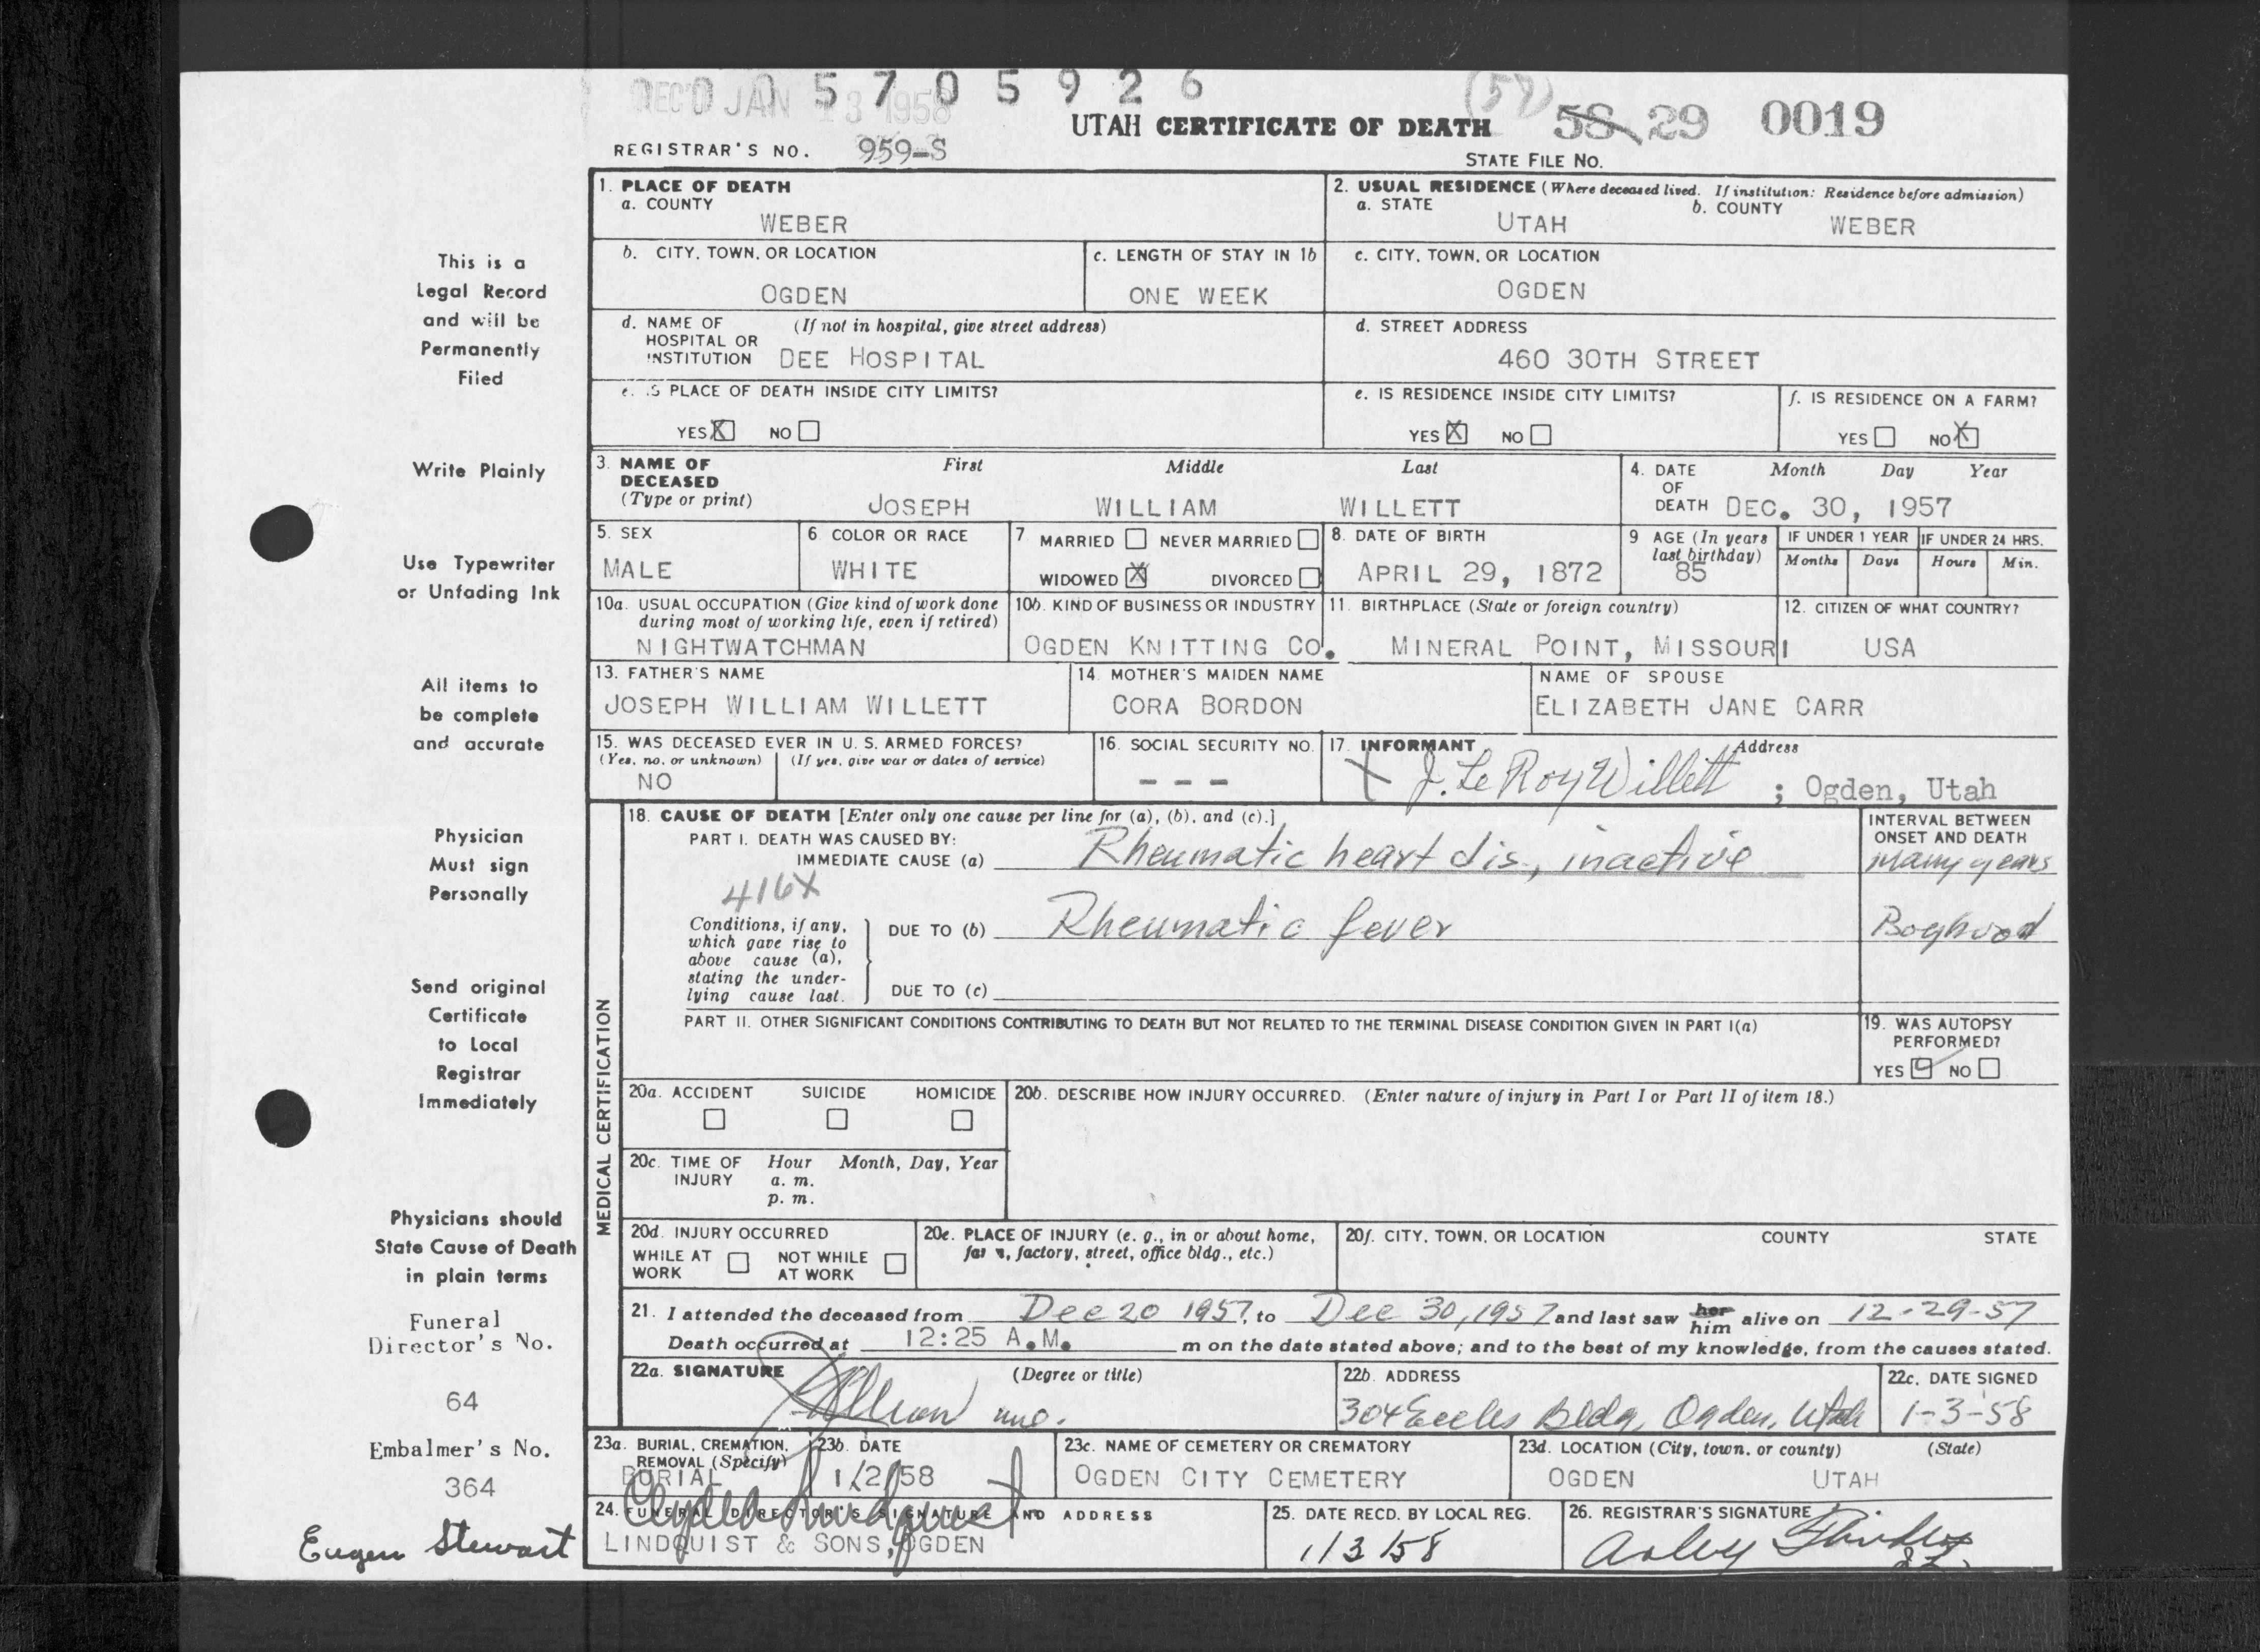 REC'D JAN 13 1958 5705926 (57)
UTAH CERTIFICATE OF DEATH 58 29 0019
REGISTRAR'S NO. 959-S STATE FILE NO.
This is a
Legal Record
and will be
Permanently
Filed
Write Plainly
Use Typewriter
or Unfading Ink
All items to
be complete
and accurate
Physician
Must sign
Personally
Send original
Certificate
to Local
Registrar
Immediately
Physicians should
State Cause of Death
in plain terms
Funeral
Director's No.
64
Embalmer's No.
364
Eugen Stewart
1. PLACE OF DEATH
a. COUNTY
WEBER
2. USUAL RESIDENCE (Where deceased lived. If institution: Residence before admission)
a. STATE b. COUNTY
UTAH WEBER
b. CITY, TOWN, OR LOCATION
OGDEN
c. LENGTH OF STAY IN 1b
ONE WEEK
c. CITY, TOWN, OR LOCATION
OGDEN
d. NAME OF (If not in hospital, give street address)
HOSPITAL OR
INSTITUTION DEE HOSPITAL
d. STREET ADDRESS
460 30TH STREET
e. IS PLACE OF DEATH INSIDE CITY LIMITS?
YES X NO
e. IS RESIDENCE INSIDE CITY LIMITS?
YES X NO
f. IS RESIDENCE ON A FARM?
YES NO X
3. NAME OF First Middle Last
DECEASED
(Type or print) JOSEPH WILLIAM WILLETT
4. DATE Month Day Year
OF
DEATH DEC. 30, 1957
5. SEX
MALE
6 COLOR OR RACE
WHITE
7 MARRIED NEVER MARRIED
WIDOWED X DIVORCED
8. DATE OF BIRTH
APRIL 29, 1872
9 AGE (In years
last birthday)
85
IF UNDER 1 YEAR IF UNDER 24 HRS.
Months Days Hours Min.
10a. USUAL OCCUPATION (Give kind of work done
during most of working life, even if retired)
NIGHTWATCHMAN
10b. KIND OF BUSINESS OR INDUSTRY
OGDEN KNITTING CO.
11. BIRTHPLACE (State or foreign country)
MINERAL POINT, MISSOURI
12. CITIZEN OF WHAT COUNTRY?
USA
13. FATHER'S NAME
JOSEPH WILLIAM WILLETT
14. MOTHER'S MAIDEN NAME
CORA BORDON
NAME OF SPOUSE
ELIZABETH JANE CARR
15. WAS DECEASED EVER IN U.S. ARMED FORCES?
(Yes, no, or unknown) (If yes, give war or dates of service)
NO
16. SOCIAL SECURITY NO.
- - -
17. INFORMANT Address
X J. LeRoy Willett ; Ogden, Utah
MEDICAL CERTIFICATION
18. CAUSE OF DEATH [Enter only one cause per line for (a), (b), and (c).]
PART I. DEATH WAS CAUSED BY:
IMMEDIATE CAUSE (a) Rheumatic heart dis., inactive
INTERVAL BETWEEN
ONSET AND DEATH
Many years
416X
Conditions, if any,
which gave rise to
above cause (a),
stating the under-
lying cause last.
DUE TO (b) Rheumatic fever
Boyhood
DUE TO (c)
PART II. OTHER SIGNIFICANT CONDITIONS CONTRIBUTING TO DEATH BUT NOT RELATED TO THE TERMINAL DISEASE CONDITION GIVEN IN PART I(a)
19. WAS AUTOPSY
PERFORMED?
YES NO
20a. ACCIDENT SUICIDE HOMICIDE
20b. DESCRIBE HOW INJURY OCCURRED. (Enter nature of injury in Part I or Part II of item 18.)
20c. TIME OF Hour Month, Day, Year
INJURY a. m.
p. m.
20d. INJURY OCCURRED
WHILE AT NOT WHILE
WORK AT WORK
20e. PLACE OF INJURY (e. g., in or about home,
farm, factory, street, office bldg., etc.)
20f. CITY, TOWN, OR LOCATION COUNTY STATE
21. I attended the deceased from Dec 20 1957, to Dec 30, 1957 and last saw her him alive on 12-29-57
Death occurred at 12:25 A.M. m on the date stated above; and to the best of my knowledge, from the causes stated.
22a. SIGNATURE (Degree or title)
22b. ADDRESS
304 Eccles Bldg, Ogden, Utah
22c. DATE SIGNED
1-3-58
23a. BURIAL, CREMATION,
REMOVAL (Specify)
BURIAL
23b. DATE
1/2/58
23c. NAME OF CEMETERY OR CREMATORY
OGDEN CITY CEMETERY
23d. LOCATION (City, town, or county) (State)
OGDEN UTAH
24. FUNERAL DIRECTOR'S SIGNATURE AND ADDRESS
LINDQUIST & SONS, OGDEN
25. DATE RECD. BY LOCAL REG.
1/3/58
26. REGISTRAR'S SIGNATURE